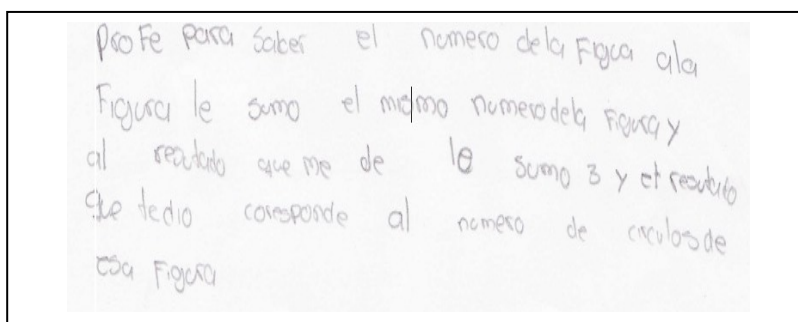 Profe para saber el numero dela Figua ala
Figura le sumo el mismo numero dela Figura y
al resutado que me de le sumo 3 y el resutado
que tedio coresponde al numero de circulos de
esa Figura